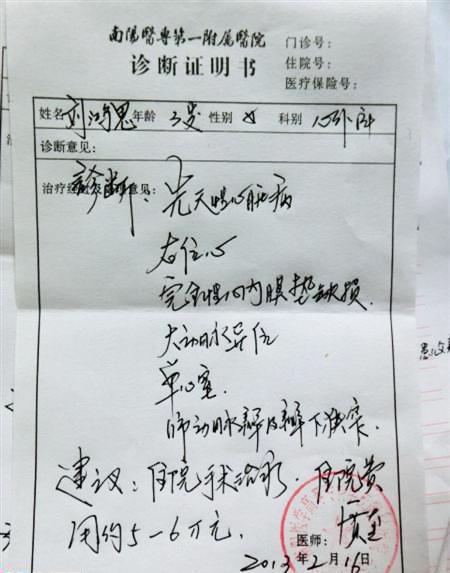 南陽醫專第一附属醫院
诊断证明书
门诊号:
住院号:
医疗保险号:
姓名 刘鸿恩 年龄 3岁 性别 女 科别 心外科
诊断意见:
治疗经过及处理意见:
診断: 先天性心脏病
右位心
完全性心内膜垫缺损.
大动脉异位
单心室.
肺动脉瓣及瓣下狭窄.
建议: 住院手术治疗. 住院费
用约5-6万元.
医师:
2013年2月16日